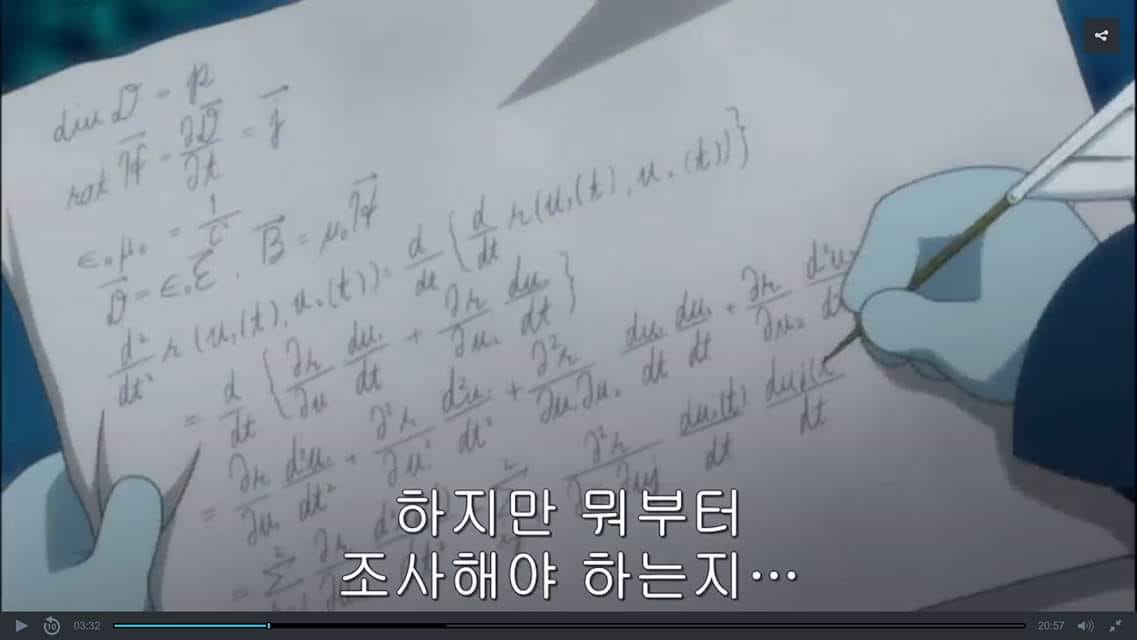 div D = ρ
rot H - ∂D/∂t = j
ε₀μ₀ = 1/c²
D = ε₀E, B = μ₀H
d²/dt² r(u₁(t), u₂(t)) = d/dt { d/dt r(u₁(t), u₂(t)) }
= d/dt { ∂r/∂u du₁/dt + ∂r/∂u₂ du₂/dt }
= ∂r/∂u₁ d²u₁/dt² + ∂²r/∂u₁² d²u₁/dt² + ∂²r/∂u₁∂u₂ du₁/dt du₂/dt + ∂r/∂u₂ d²u₂/dt
하지만 뭐부터
조사해야 하는지…
03:32
20:57